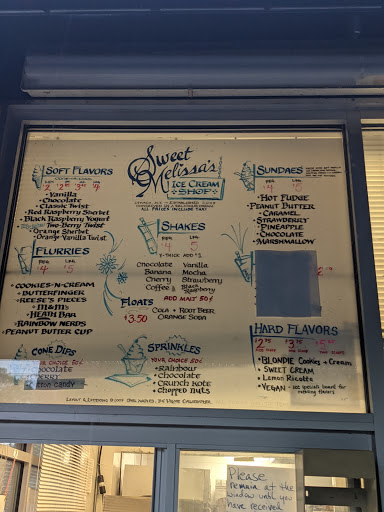 Soft Flavors
Vanilla
Chocolate
Classic Twist
Red Raspberry Sherbet
Black Raspberry Yogurt
Two-Berry Twist
Orange Sherbet
Orange Vanilla Twist
Sweet
Melissa's
Ice Cream
Shop
All Prices Include Tax
Sundaes
Hot Fudge
Peanut Butter
Caramel
Strawberry
Pineapple
Chocolate
Marshmallow
Shakes
Reg. Lrg.
4 5
X-Thick Add $1
Chocolate Vanilla
Banana Mocha
Cherry Strawberry
Coffee Black Raspberry
Add Malt 50¢
Flurries
Reg. Lrg.
4 5
Cookies-N-Cream
Butterfinger
Reese's Pieces
M&M's
Heath Bar
Rainbow Nerds
Peanut Butter Cup
Floats
$3.50
Cola + Root Beer
Orange Soda
Cone Dips
Your Choice 50¢
Chocolate
Cherry
Sprinkles
Your Choice 50¢
Rainbow
Chocolate
Crunch Kote
Chopped Nuts
Hard Flavors
Blondie Cookies + Cream
Sweet Cream
Lemon Ricotta
Vegan - see specials board for rotating flavors
Please
remain at the
window until you
have received